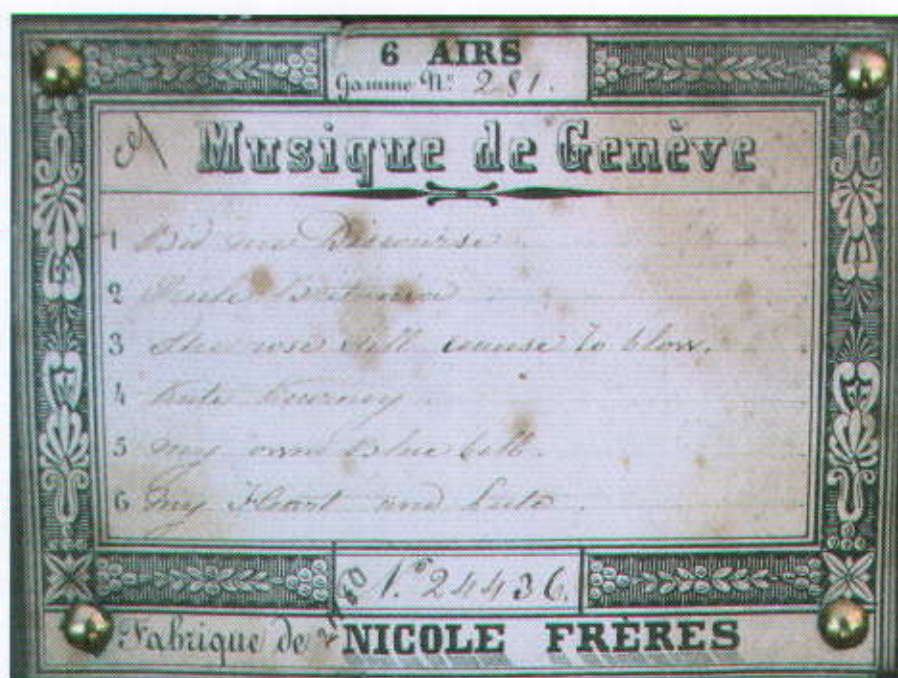 6 AIRS
Gamme Nº 281.
Musique de Genève
1 Bid me Discourse
2 Rule Britannia
3 The rose will cease to blow.
4 Kate Kearney
5 My own blue bell.
6 My Heart and Lute.
Nº 24436.
Fabrique de NICOLE FRÈRES